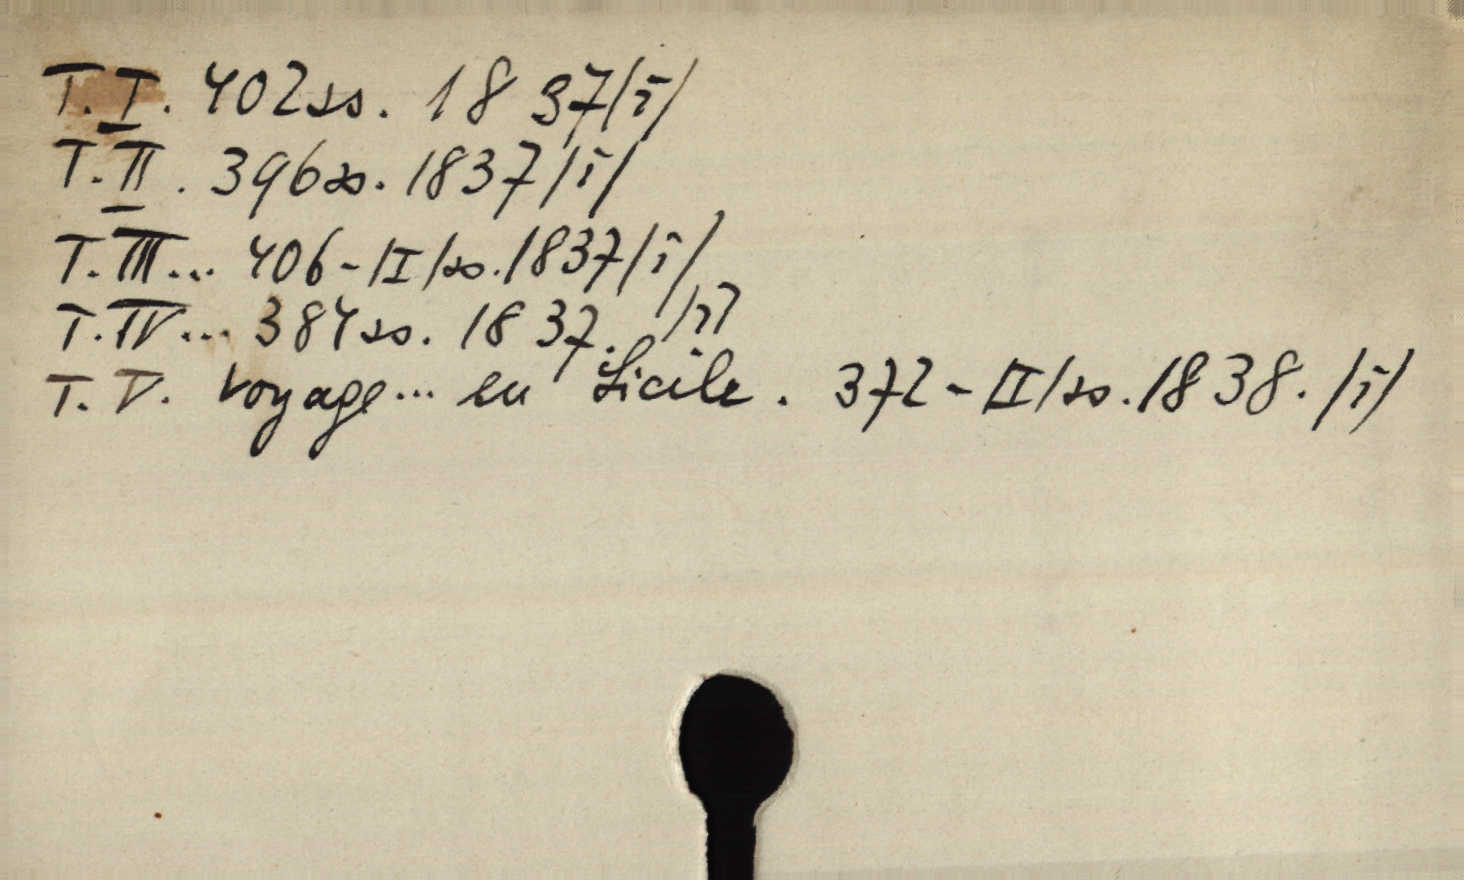 T. I. 402 ss. 1837 /i/
T. II. 396 ss. 1837 /i/
T. III... 406-/I/ ss. 1837 /i/
T. IV... 384 ss. 1837. /i/
T. V. Voyage... en Sicile. 372-II/ ss. 1838. /i/